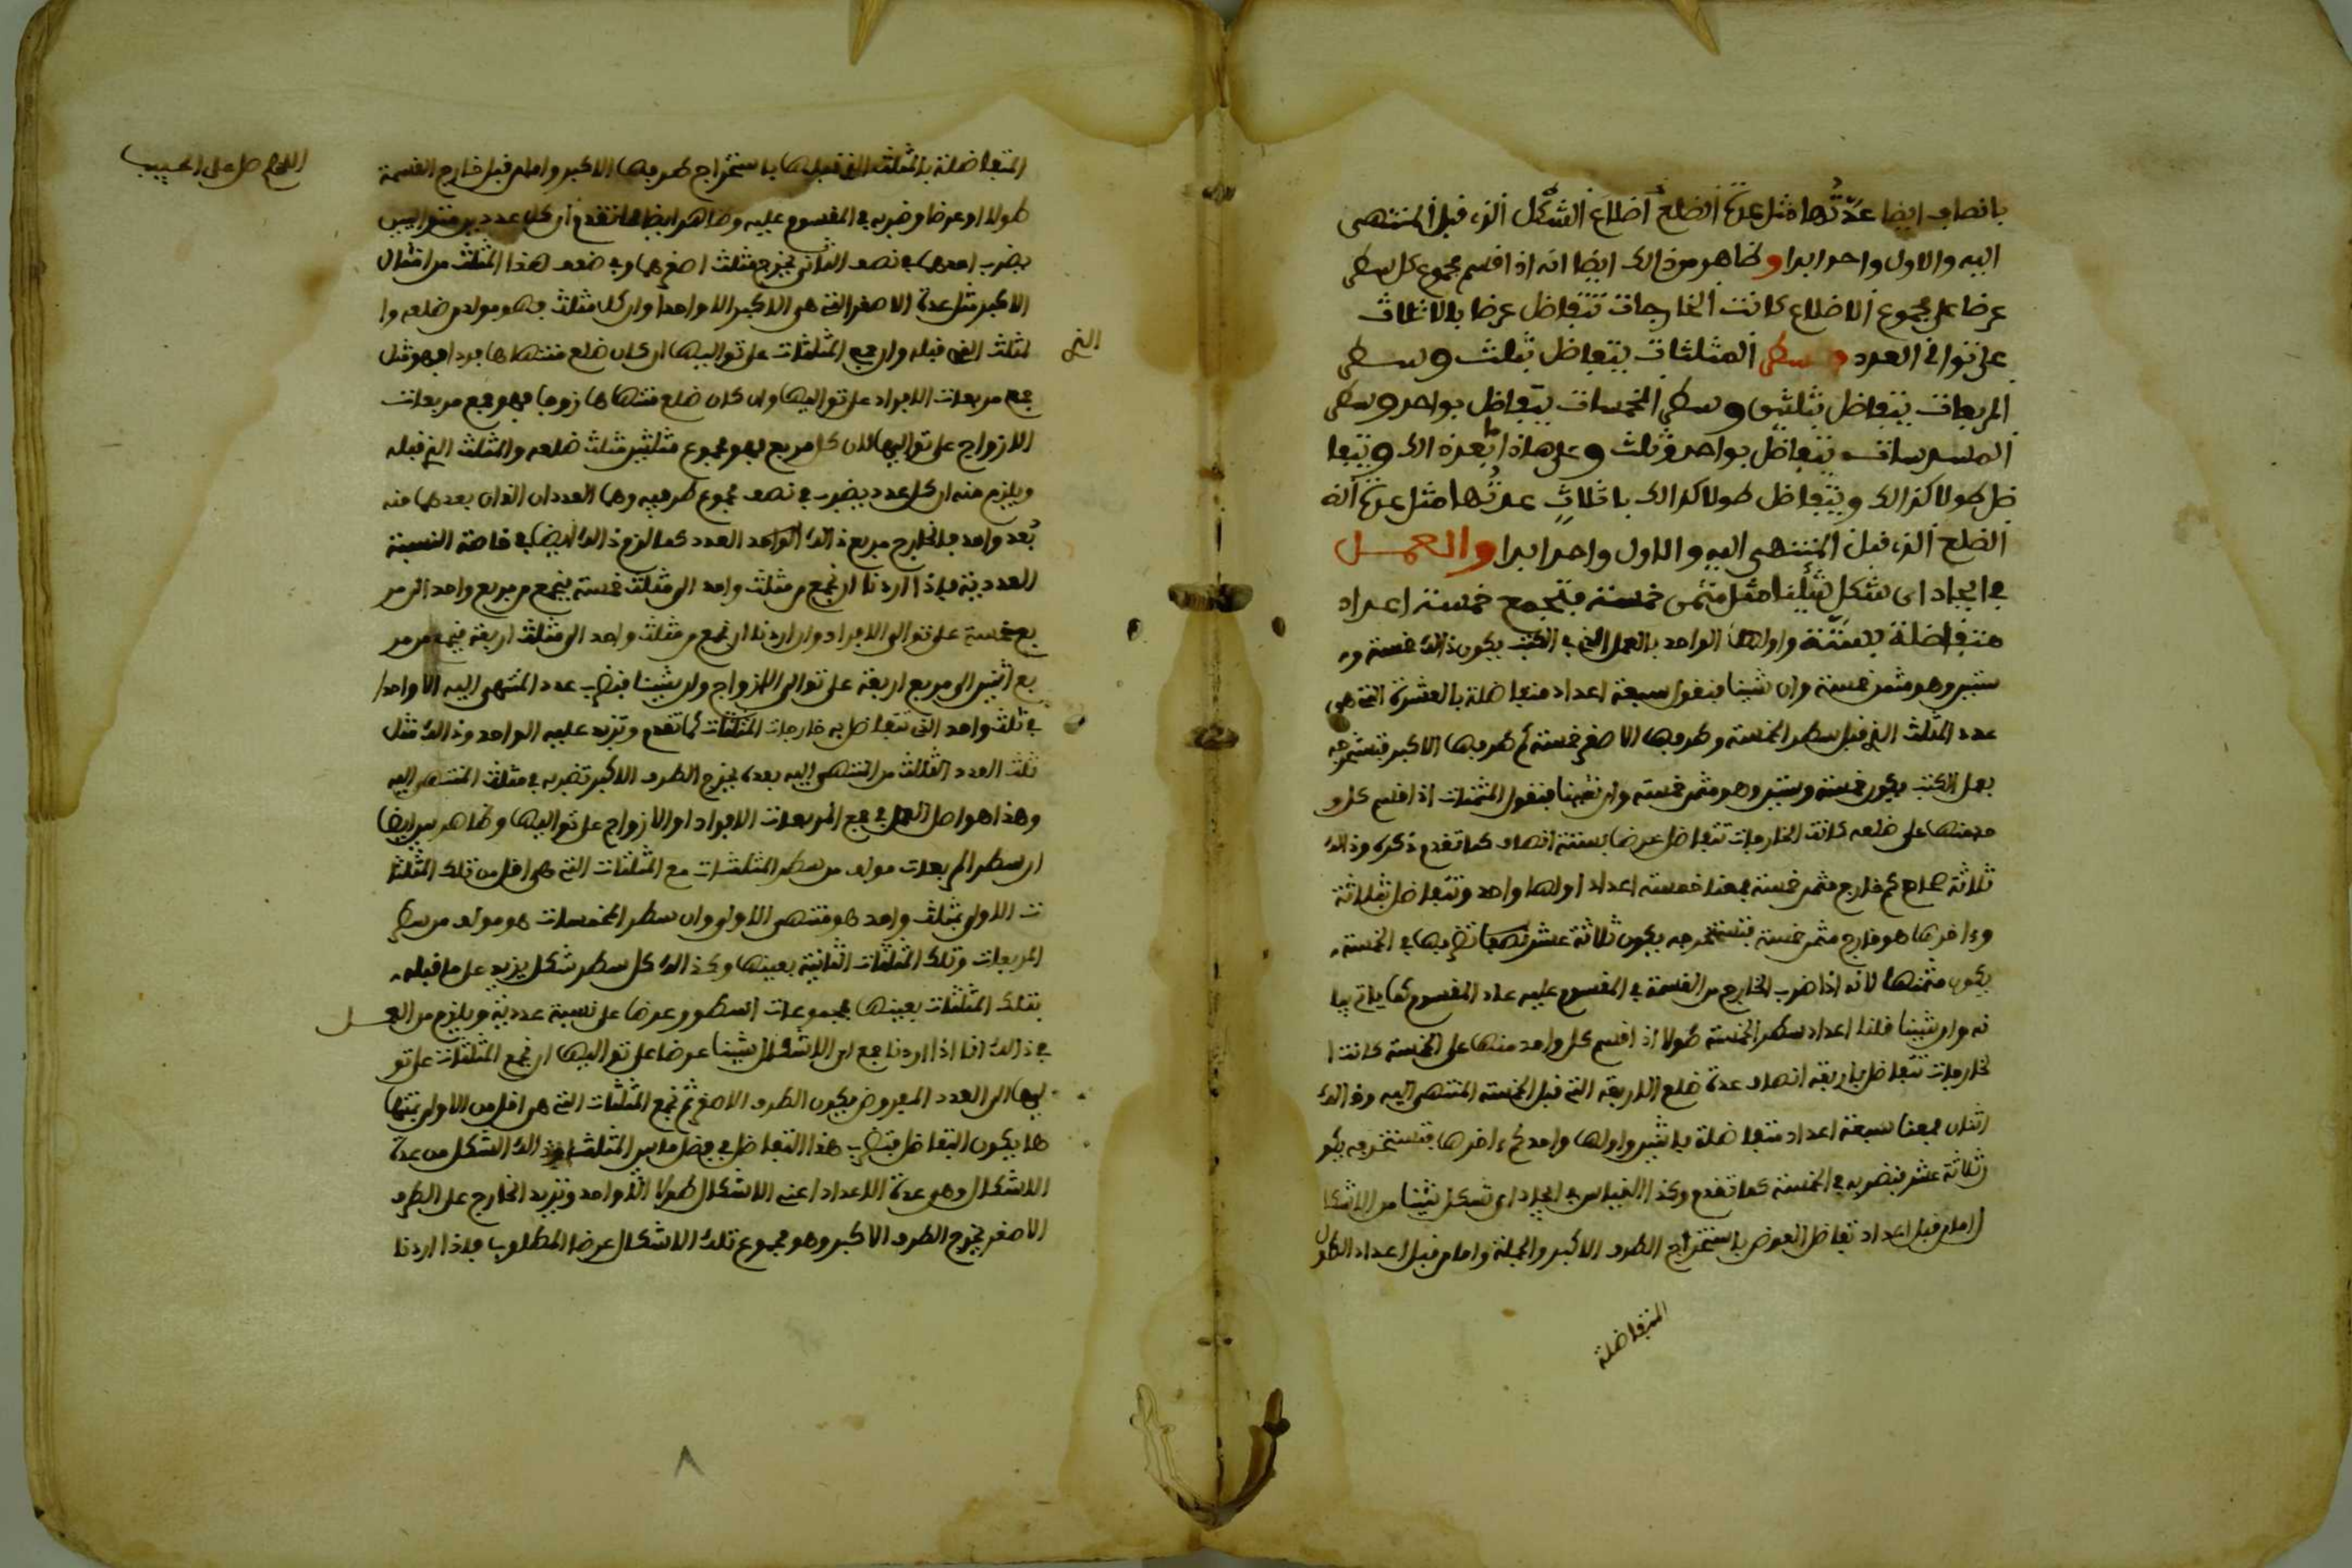 بانصاف ايضا عدتها مثل عدة الضلع اضلاع الشكل الذي قبل المنتهى
اليه والاول واحد ابدا وظاهر من ذالك ايضا انه اذا قسم مجموع كل سطر
عرضا على مجموع الاضلاع كانت الخارجات تتفاضل عرضا بالاثلاث
على توالي العدد وسطر المثلثات يتفاضل بثلث وسطر
المربعات يتفاضل بثلثين وسطر المخمسات يتفاضل بواحد وسطر
المسدسات يتفاضل بواحد وثلث وعلى هاذا ما بعد ذالك ويتفا
ضل طولا كذالك ويتفاضل طولا كذالك باثلاث عدتها مثل عدة
الضلع الذي قبل المنتهى اليه والاول واحد ابدا والعمل
في ايجاد اي شكل شئنا مثل مثمن خمسة فتجمع خمسة اعداد
متفاضلة بستة واولها الواحد بالعمل الذي في الكتب يكون ذالك خمسة و
ستين وهو مثمن خمسة وان شئنا فنقول سبعة اعداد متفاضلة بالعشرة التي هي
عدد المثلث الذي قبل سطر الخمسة وطرفها الاصغر خمسة كم طرفها الاكبر فتستخرجه
بعمل الكتب يكون خمسة وستين وهو مثمن خمسة وان شئنا فنقول المثمنات اذا قسم كل و
احد منها على ضلعه كانت الخارجات تتفاضل عرضا بستة انصاف كما تقدم ذكره وذالك
ثلاثة صحاح كم خارج مثمن خمسة معنا خمسة اعداد اولها واحد وتتفاضل بثلاثة
وءاخرها هو خارج مثمن خمسة فتستخرجه يكون ثلاثة عشر تضربها في الخمسة
يكون مثمنها لانه اذا ضرب الخارج من القسمة في المقسوم عليه عاد المقسوم كما ياتي بيا
نه وان شئنا قلنا اعداد سطر الخمسة طولا اذا قسم كل واحد منها على الخمسة كانت ا
لخارجات تتفاضل باربعة انصاف عدة ضلع الاربعة التي قبل الخمسة المنتهى اليه وذالك
اثنان معنا سبعة اعداد متفاضلة باثنين واولها واحد كم ءاخرها فتستخرجه يكو
ن ثلاثة عشر فنضربه في الخمسة كما تقدم وكذا القياس في ايجاد اي شكل شئنا من الاشكا
ل اما من قبل اعداد تفاضل العرض باستخراج الطرف الاكبر والجملة واما من قبل اعداد الطول
المتفاضلة
اللهم صل على الحبيب
المتفاضلة بالمثلث التي قبلها باستخراج طرفها الاكبر واما من قبل خارج القسمة
طولا او عرضا وضربه في المقسوم عليه وظاهر ايضا مما تقدم ان كل عددين متواليين
يضرب احدهما في نصف الثاني يخرج مثلث اصغرهما وفي ضعف هذا المثلث من امثال
الاكبر مثل عدة الاصغر التي هي الاكبر الا واحدا وان كل مثلث فهو مولد من ضلعه وا
لمثلث الذي قبله وان جمع المثلثات على تواليها ان كان ضلع منتهاها فردا فهو مثل
الذي
جمع مربعات الافراد على تواليها وان كان ضلع منتهاها زوجا فهو جمع مربعات
الازواج على تواليها لان كل مربع فهو مجموع مثلثين مثلث ضلعه والمثلث الذي قبله
ويلزم منه ان كل عدد يضرب في نصف مجموع طرفيه وهما العددان الذان بعدهما منه
بعد واحد فالخارج مربع ذالك الواحد العدد كما لزم ذالك ايضا في خاصة النسبة
العددية فاذا اردنا ان نجمع من مثلث واحد الى مثلث خمسة فنجمع من مربع واحد الى مر
بع خمسة على توالي الافراد وان اردنا ان نجمع من مثلث واحد الى مثلث اربعة فنجمع من مر
بع اثنين الى مربع اربعة على توالي الازواج وان شئنا فنضرب عدد المنتهى اليه الا واحدا
في ثلث واحد التي تتفاضل به خارجات المثلثات كما تقدم ونزيد عليه الواحد وذالك مثل
ثلث العدد الثالث من المنتهى اليه بعده يخرج الطرف الاكبر تضربه في مثلث المنتهى اليه
وهذا هو اصل العمل في جمع المربعات الافراد او الازواج على تواليها وظاهر بين ايضا
ان سطر المربعات مولد من سطر المثلثات مع المثلثات التي هي اقل من تلك المثلثا
ت الاول بمثلث واحد هو منتهى الاول وان سطر المخمسات هو مولد من سطر
المربعات وتلك المثلثات الثانية بعينها وكذالك كل سطر شكل يزيد على ما قبله
بتلك المثلثات بعينها فمجموعات السطور عرضا على نسبة عددية ويلزم من العمل
في ذالك انا اذا اردنا جمع اي الاشكال شئنا عرضا على تواليها ان نجمع المثلثات على تو
اليها الى العدد المفروض يكون الطرف الاصغر ثم نجمع المثلثات التي هي اقل من الاول بمنتها
ها يكون التفاضل فتضرب هذا التفاضل في فضل ما بين المثلث وذالك الشكل من عدة
الاشكال وهي عدة الاعداد اعني الاشكال طولا الا واحد ونزيد الخارج على الطرف
الاصغر يخرج الطرف الاكبر وهو مجموع تلك الاشكال عرضا المطلوب فاذا اردنا
٨